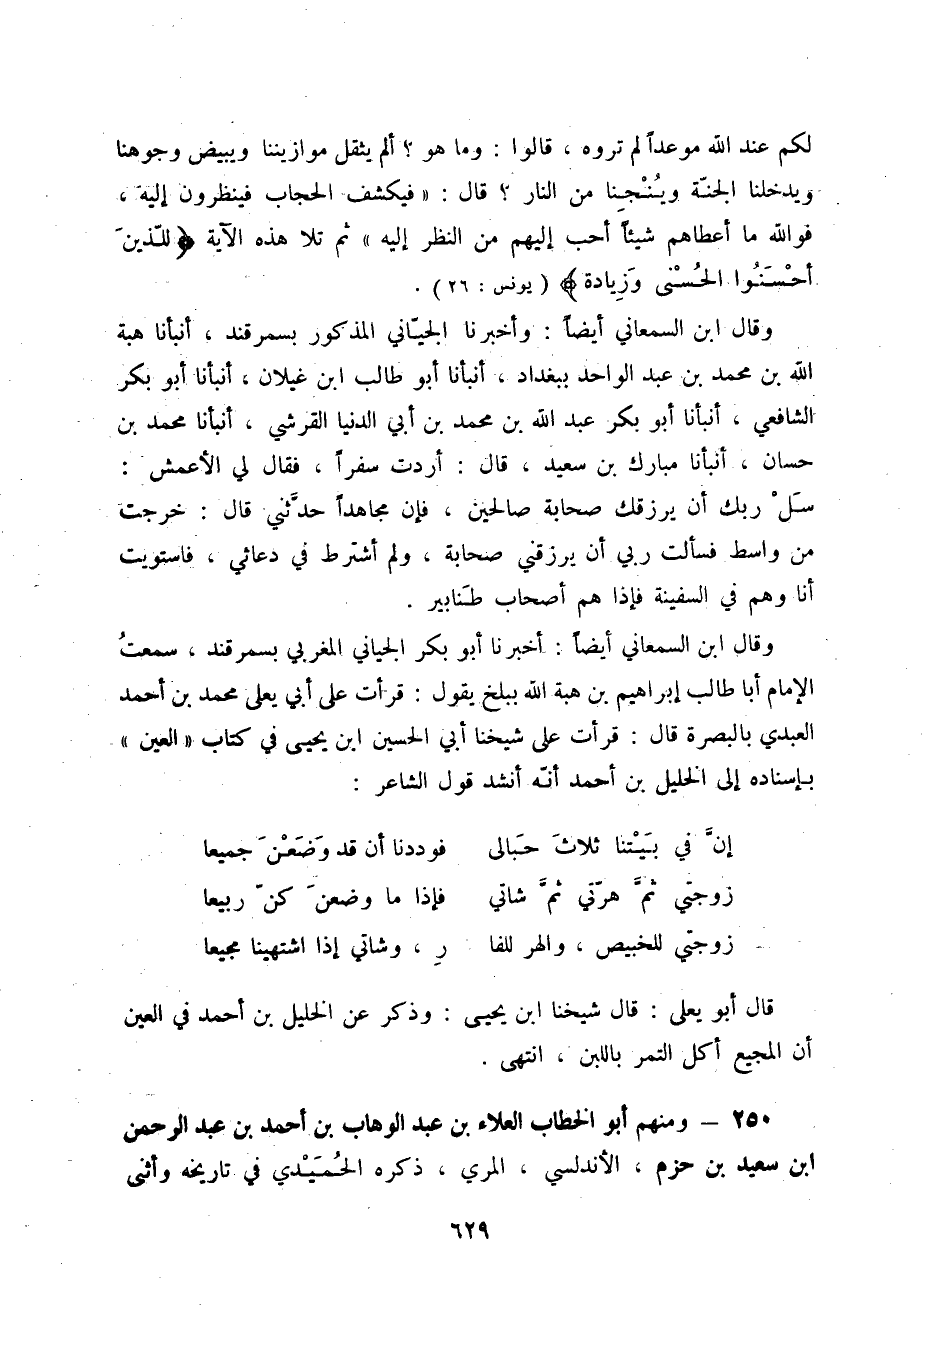 لكم عند الله موعداً لم تروه ، قالوا : وما هو ؟ ألم يثقل موازيننا ويبيض وجوهنا
ويدخلنا الجنّة ويُنْجِنا من النار ؟ قال : « فيكشف الحجاب فينظرون إليه ،
فوالله ما أعطاهم شيئاً أحب إليهم من النظر إليه » ثم تلا هذه الآية ﴿ للّذينَ
أحْسَنُوا الحُسْنى وَزِيادة ﴾ ( يونس : ٢٦ ) .
وقال ابن السمعاني أيضاً : وأخبرنا الجيّاني المذكور بسمرقند ، أنبأنا هبة
الله بن محمد بن عبد الواحد ببغداد ، أنبأنا أبو طالب ابن غيلان ، أنبأنا أبو بكر
الشافعي ، أنبأنا أبو بكر عبد الله بن محمد بن أبي الدنيا القرشي ، أنبأنا محمد بن
حسان ، أنبأنا مبارك بن سعيد ، قال : أردت سفراً ، فقال لي الأعمش :
سَلْ ربك أن يرزقك صحابة صالحين ، فإن مجاهداً حدَّثني قال : خرجت
من واسط فسألت ربي أن يرزقني صحابة ، ولم أشترط في دعائي ، فاستويت
أنا وهم في السفينة فإذا هم أصحاب طَنابير .
وقال ابن السمعاني أيضاً : أخبرنا أبو بكر الجياني المغربي بسمرقند ، سمعتُ
الإمام أبا طالب إبراهيم بن هبة الله ببلخ يقول : قرأت على أبي يعلى محمد بن أحمد
العبدي بالبصرة قال : قرأت على شيخنا أبي الحسين ابن يحيى في كتاب « العين »
بإسناده إلى الخليل بن أحمد أنّه أنشد قول الشاعر :
إنَّ في بَيْتنا ثلاثَ حَبالى فوددنا أن قد وَضَعْنَ جميعا
زوجتي ثمَّ هرّتي ثمَّ شاتي فإذا ما وضعنَ كنّ ربيعا
زوجتي للخبيص ، والهر للفا رِ ، وشاتي إذا اشتهينا مجيعا
قال أبو يعلى : قال شيخنا ابن يحيى : وذكر عن الخليل بن أحمد في العين
أن المجيع أكل التمر باللبن ، انتهى .
٢٥٠ – ومنهم أبو الخطاب العلاء بن عبد الوهاب بن أحمد بن عبد الرحمن
ابن سعيد بن حزم ، الأندلسي ، المري ، ذكره الحُمَيْدي في تاريخه وأثنى
٦٢٩